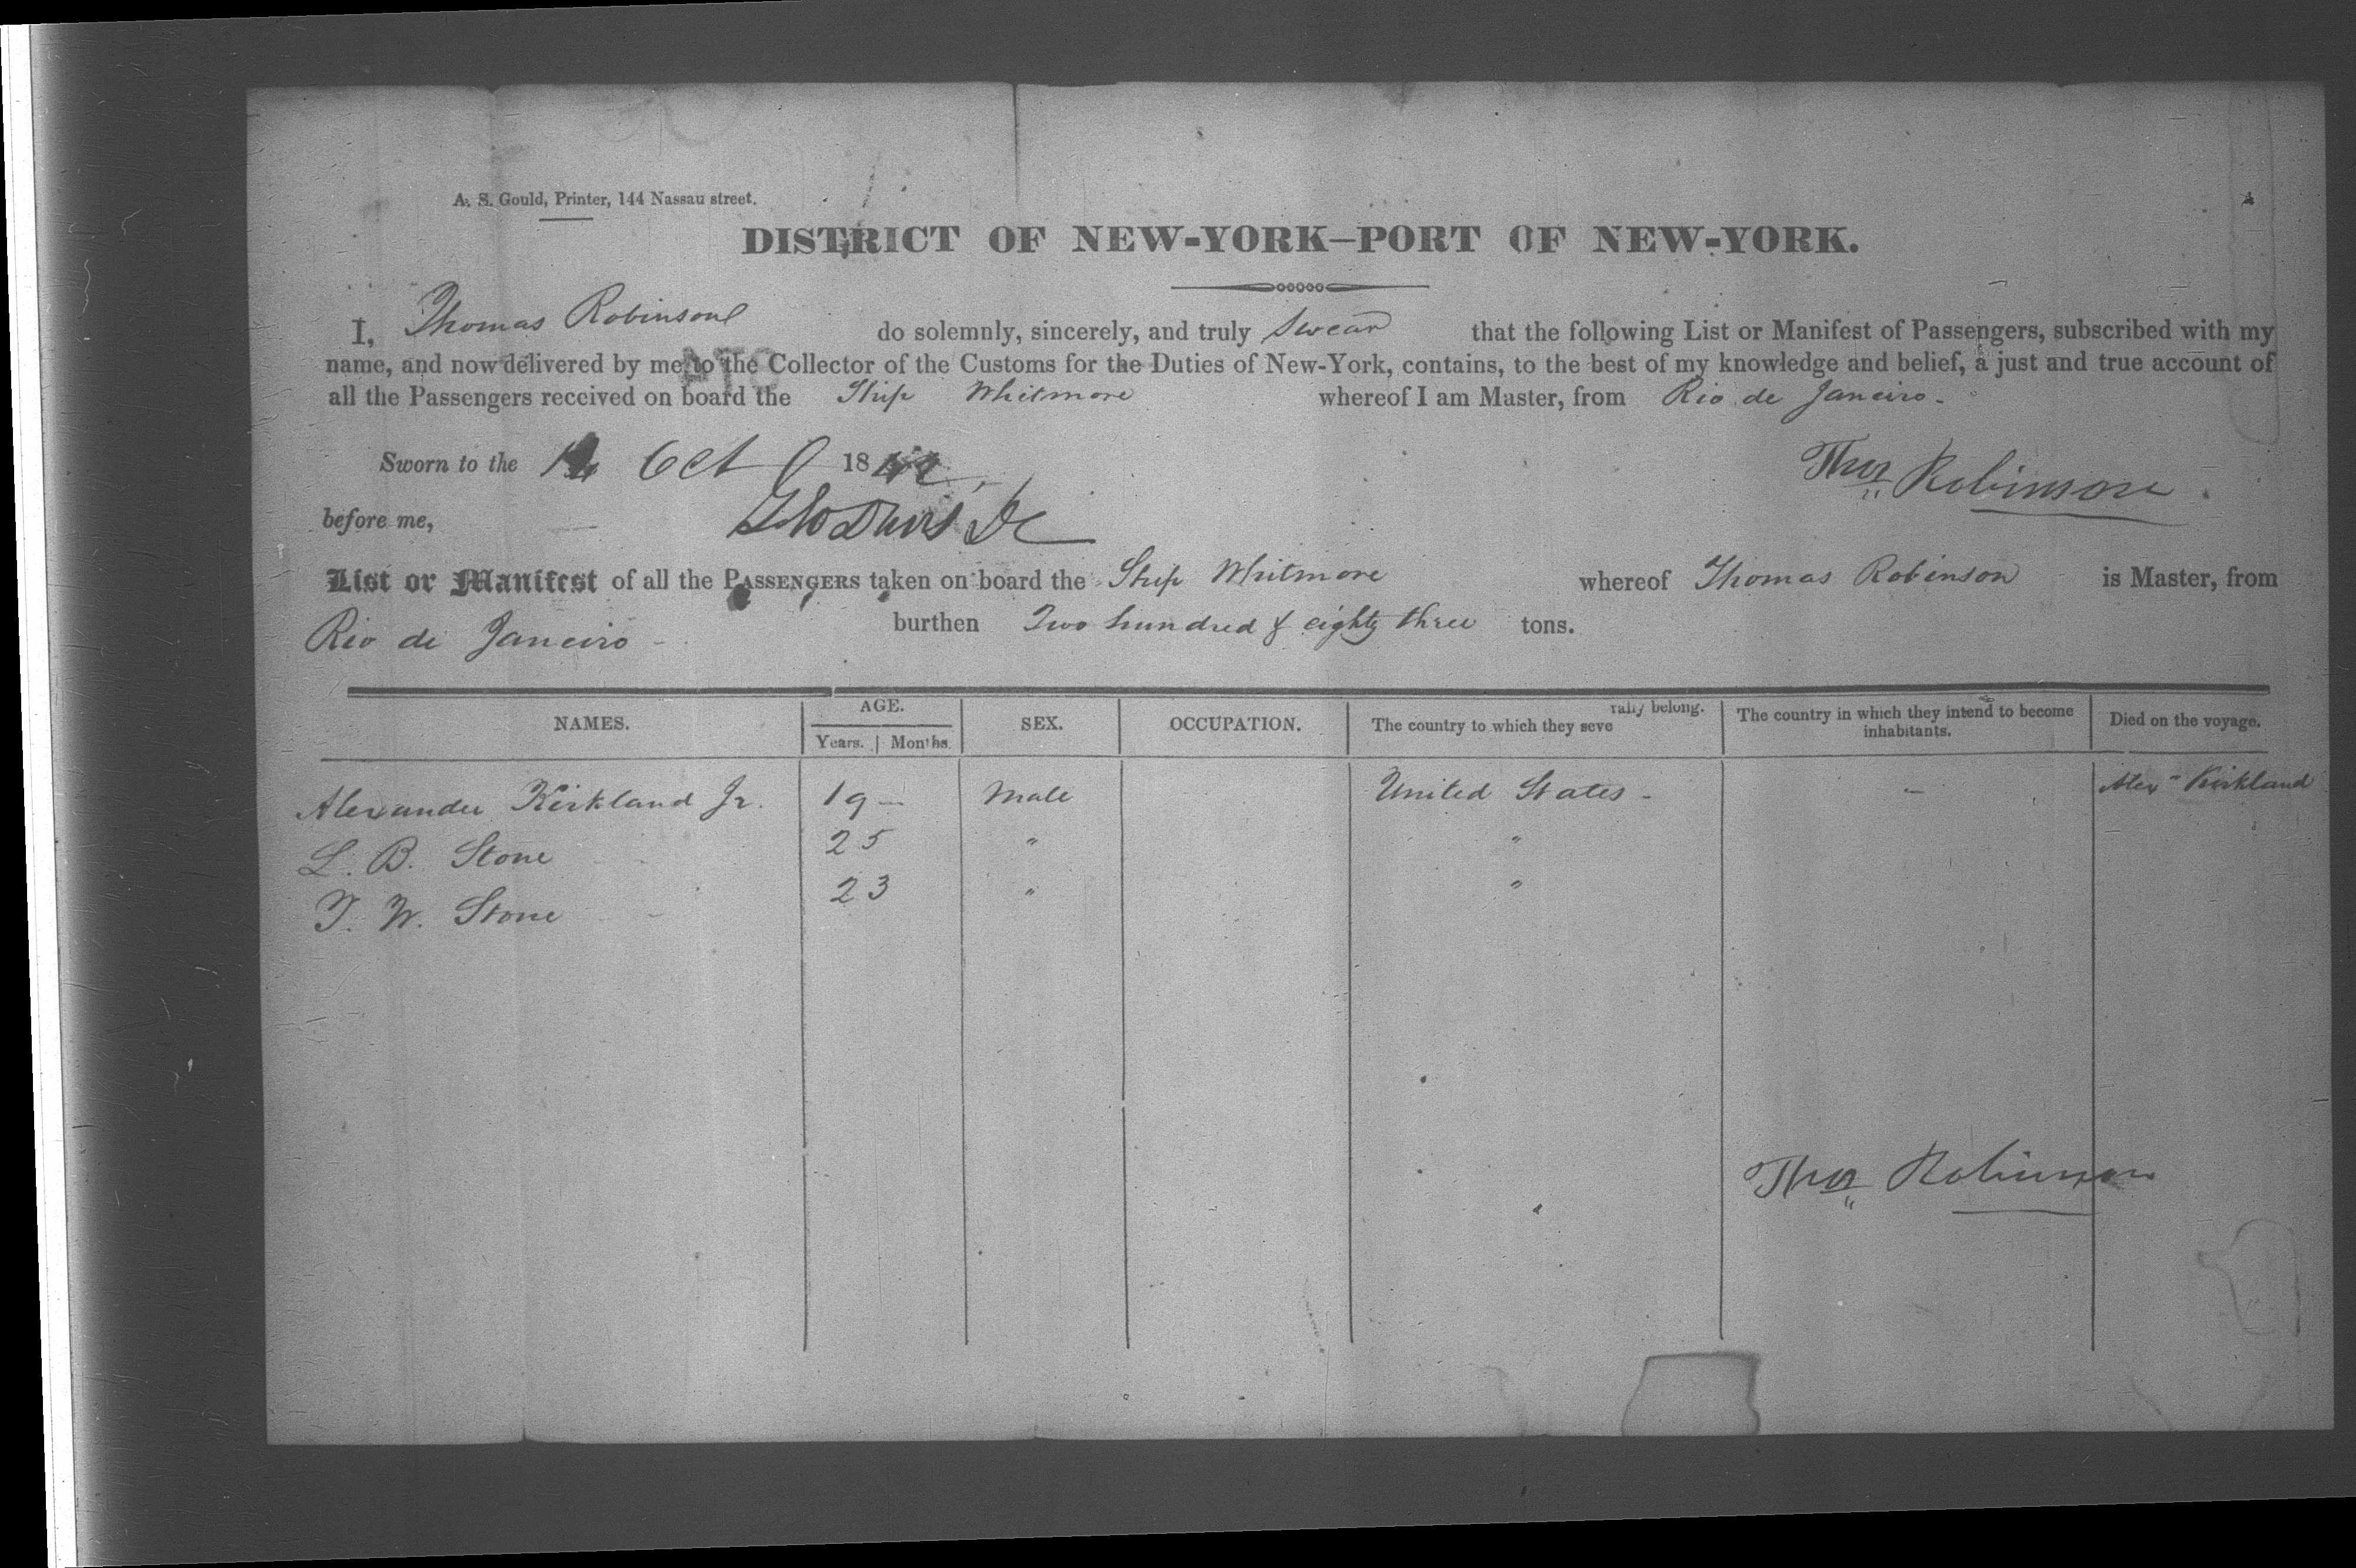 A. S. Gould, Printer, 144 Nassau street.
DISTRICT OF NEW-YORK—PORT OF NEW-YORK.
I, Thomas Robinson do solemnly, sincerely, and truly swear that the following List or Manifest of Passengers, subscribed with my
name, and now delivered by me to the Collector of the Customs for the Duties of New-York, contains, to the best of my knowledge and belief, a just and true account of
all the Passengers received on board the Ship Whitmore whereof I am Master, from Rio de Janeiro -
Sworn to the Oct 18
Thos Robinson
before me,
List or Manifest of all the PASSENGERS taken on board the Ship Whitmore whereof Thomas Robinson is Master, from
Rio de Janeiro - burthen Two hundred & eighty three tons.
NAMES. AGE. Years. Months. SEX. OCCUPATION. The country to which they severally belong. The country in which they intend to become inhabitants. Died on the voyage.
Alexander Kirkland Jr. 19 - Male United States - - Alexr Kirkland
L. B. Stone 25 " "
T. W. Stone 23 " "
Thos Robinson